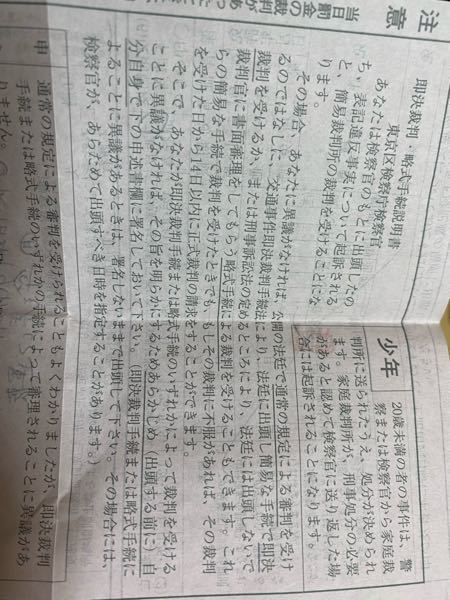 注意
当日
即決裁判・略式手続説明書
東京区検察庁検察官
あなたは検察官のもとに出頭したの
ち、表記違反事実について起訴される
と、簡易裁判所の裁判を受けることにな
ります。
少年
20歳未満の者の事件は、警
察または検察官から家庭裁
判所に送られたうえ、処分が決められ
ます。家庭裁判所が、刑事処分の必要
があると認めて検察官に送り返した場
合には起訴されることになります。
その場合、あなたに異議がなければ、公開の法廷で通常の規定による審判を受け
るのではなしに、交通事件即決裁判手続法により、法廷に出頭し簡易な手続で即決
裁判を受けるか、または刑事訴訟法の定めるところにより、法廷には出頭しないで
裁判官に書面審理をしてもらう略式手続による裁判を受けることもできます。これ
らの簡易な手続で裁判を受けたときでも、もしその裁判に不服があれば、その裁判
を受けた日から14日以内に正式裁判の請求をすることができます。
そこで、あなたが即決裁判手続または略式手続のいずれかによって裁判を受ける
ことに異議がなければ、その旨を明らかにするためあらかじめ（出頭する前に）自
分自身で下の申述書欄に署名しておいて下さい。（即決裁判手続または略式手続に
よることに異議があるときは、署名しないままで出頭して下さい。その場合には、
検察官が、あらためて出頭すべき日時を指定することがあります。）
申
通常の規定による審判を受けられることもよくわかりましたが、即決裁判
手続または略式手続のいずれかの手続によって審理されることに異議があ
りません。